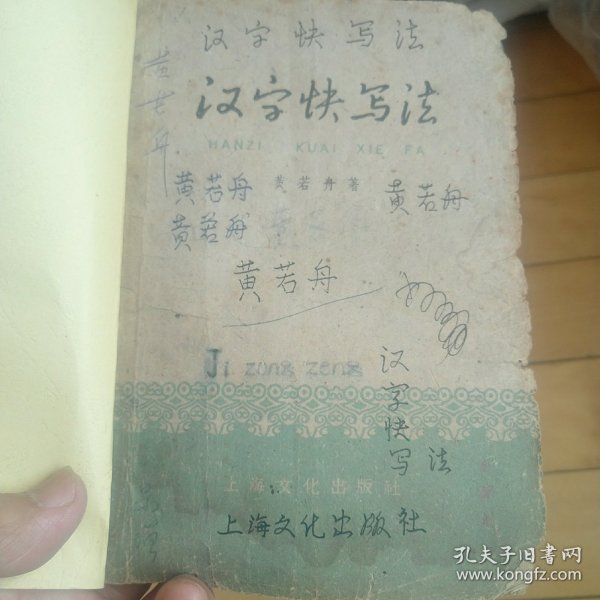 汉字快写法
汉字快写法
HANZI KUAI XIE FA
黄若舟著
黄若舟
黄若舟
黄若舟
黄若舟
Ji zong zeng
汉
字
快
写法
上海文化出版社
上海文化出版社
孔夫子旧书网
www.kongfz.com